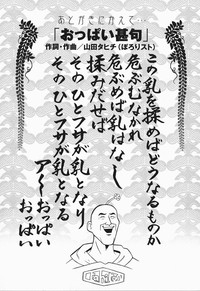 あとがきにかえて…
「おっぱい甚句」
作詞・作曲/山田タヒチ(ぼろリスト)
この乳を揉めばどうなるものか
危ぶむなかれ
危ぶめば乳はなし
揉みだせば
そのひとフサが乳となり
そのひとフサが乳となる
ア〜おっぱい
おっぱい